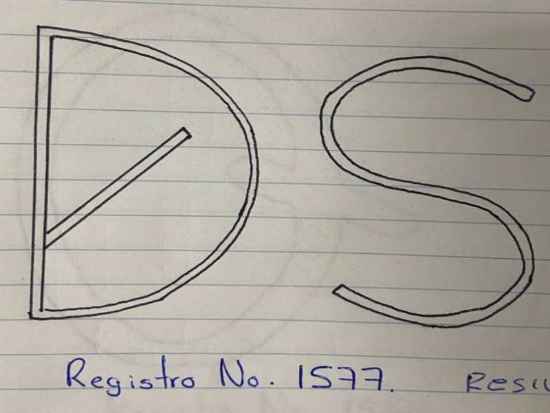 DS
Registro No. 1577.